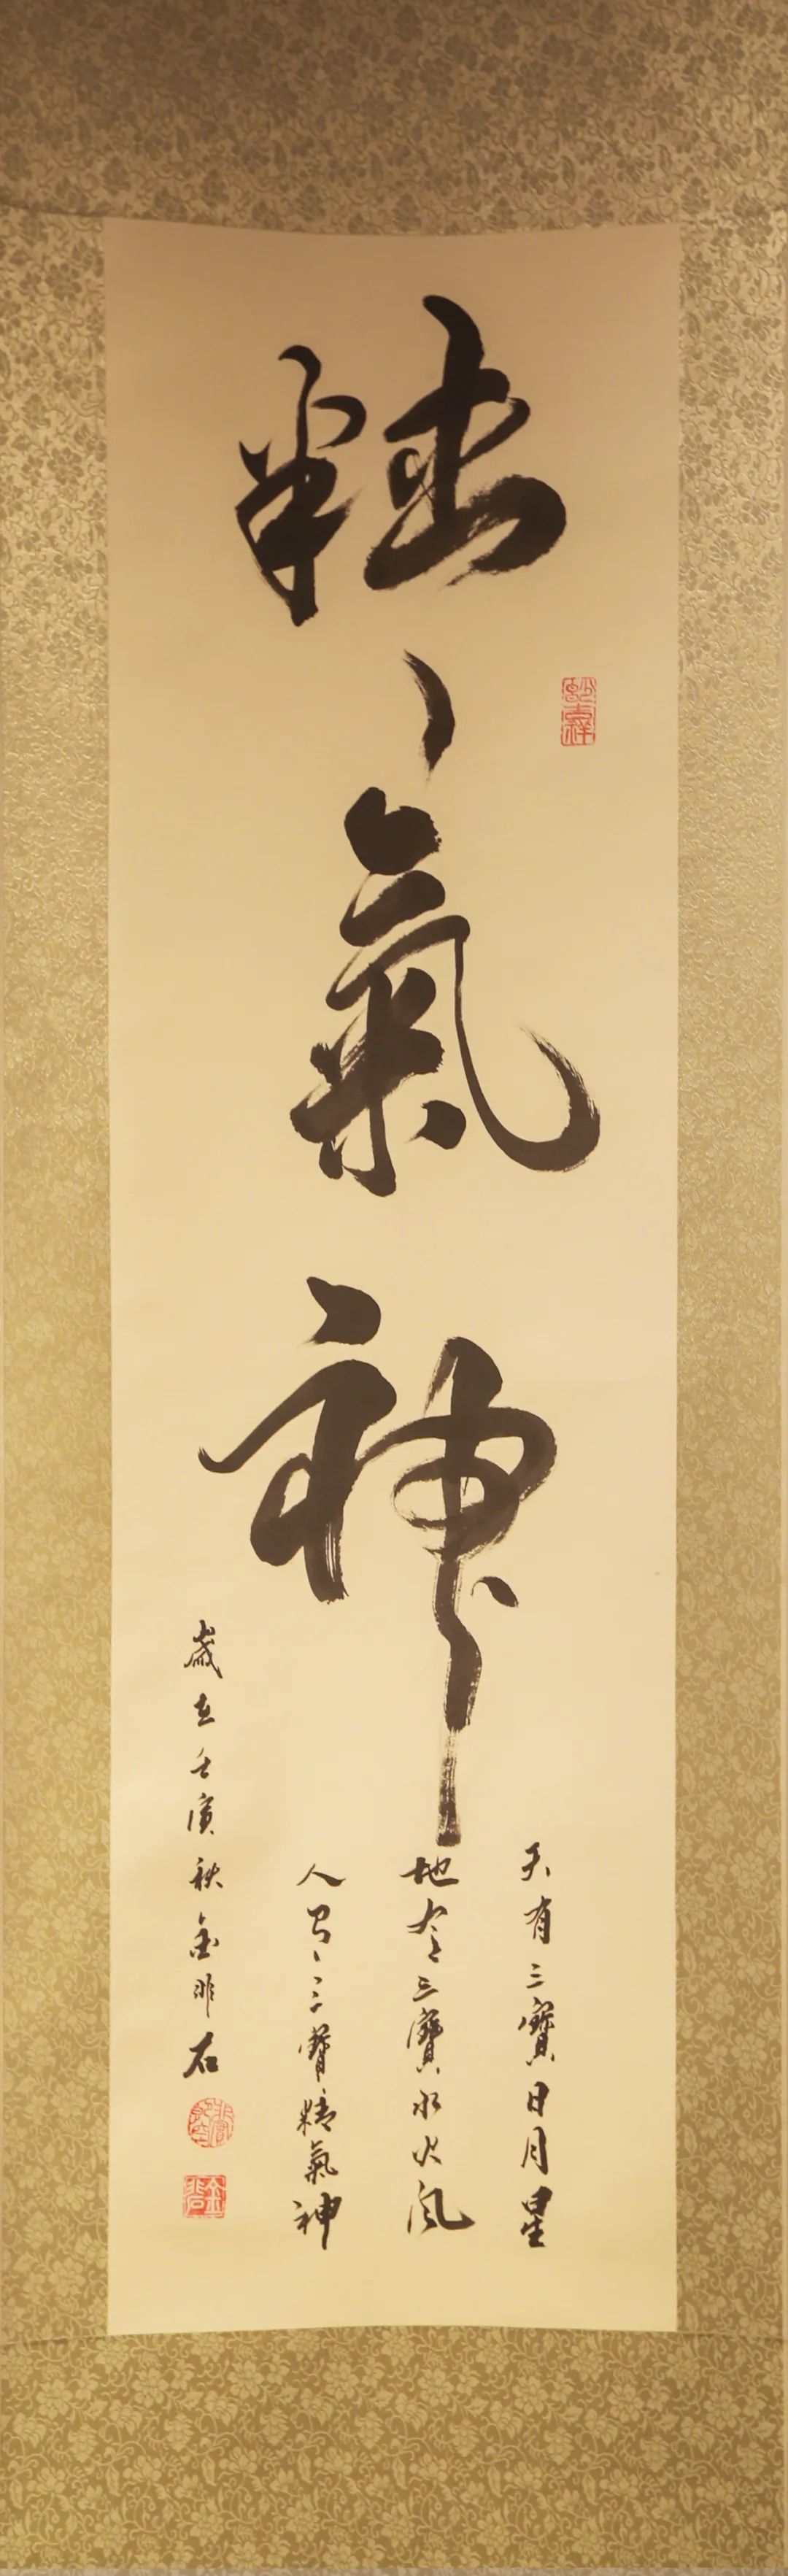 精氣神
天有三寶日月星
地有三寶水火風
人有三寶精氣神
歲在壬寅秋金非石